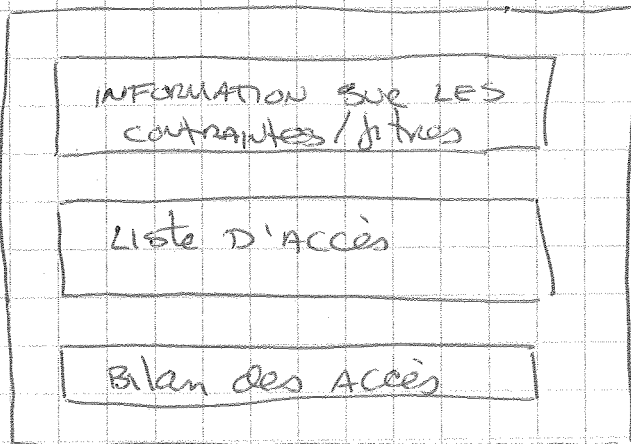 INFORMATION SUR LES
CONTRAINTES/fitres
Liste D'Accès
Bilan des Accès